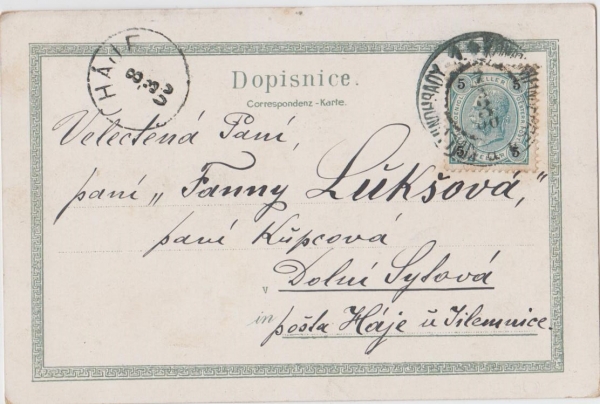 HÁJE
Dopisnice.
Correspondenz-Karte.
5 5
Velectená Paní,
paní „Fanny Lukšová,"
paní Kupcová
v Dolní Sytová
in pošta Háje u Jilemnice.